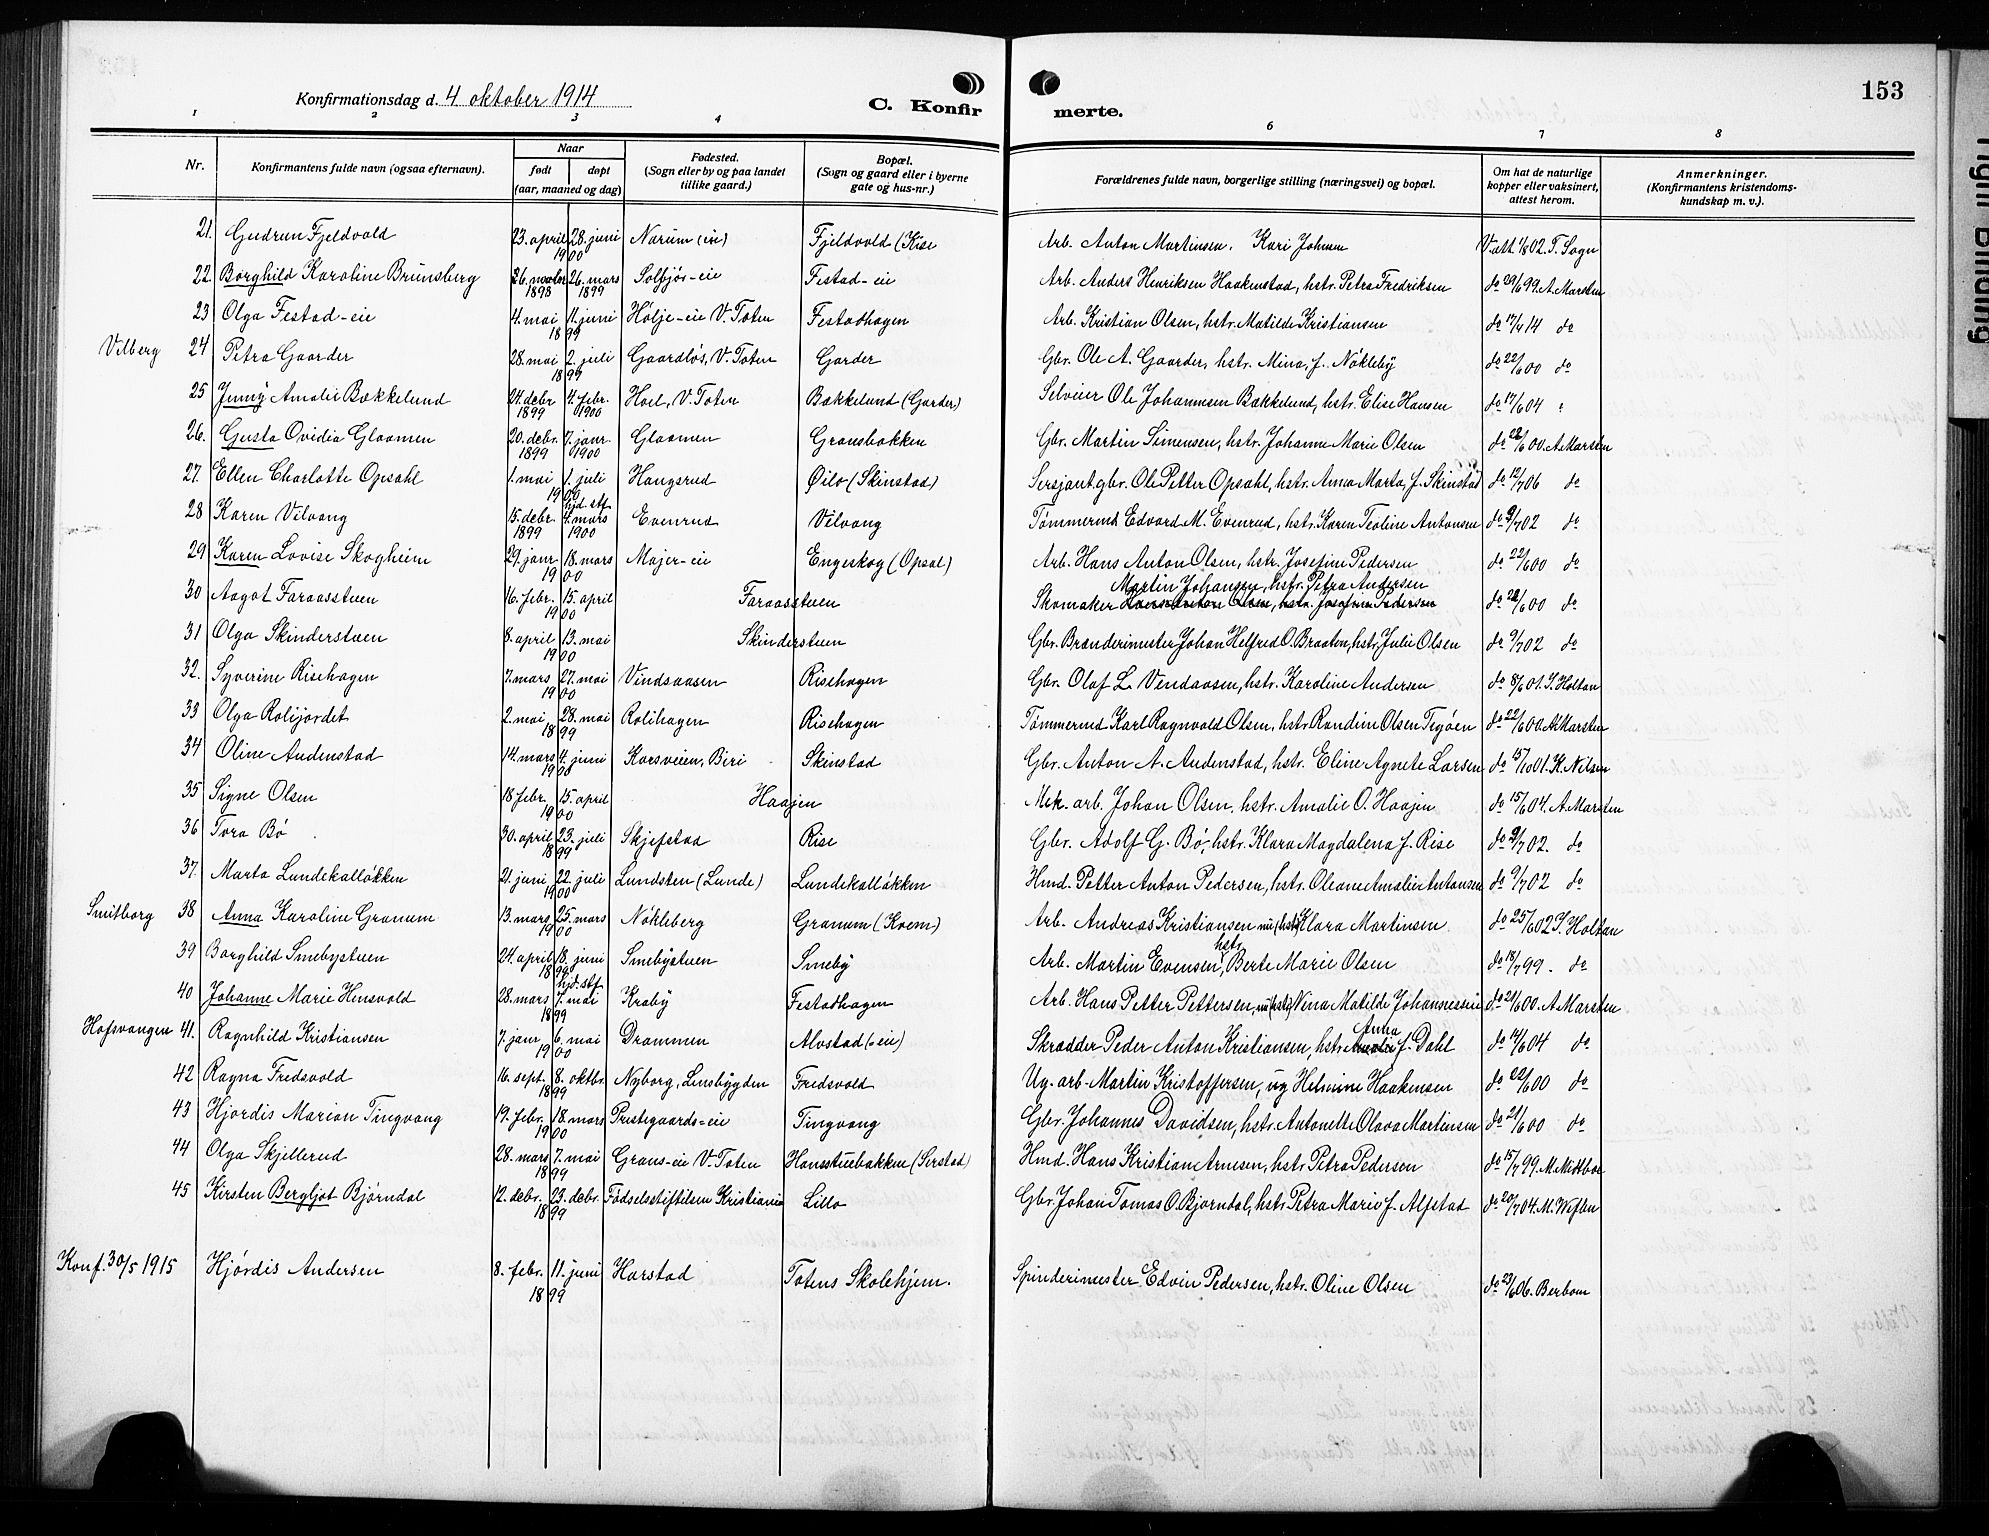 Konfirmationsdag d. 4 oktober 1914
C. Konfir
merte.
153
1 2 3 4 5 6 7 8
Nr. Konfirmantens fulde navn (ogsaa efternavn). Naar født døpt (aar, maaned og dag) Fødested. (Sogn eller by og paa landet tillike gaard.) Bopæl. (Sogn og gaard eller i byerne gate og hus-nr.) Forældrenes fulde navn, borgerlige stilling (næringsvei) og bopæl. Om hat de naturlige kopper eller vaksinert, attest herom. Anmerkninger. (Konfirmantens kristendoms-kundskap m. v.).
21. Gudrun Fjeldvold 23. april 28. juni 1900 Narum (eie) Fjeldvold (Kise Arb. Anton Martinsen, Kari Johnsen
22. Borghild Karoline Brunsberg 26. novbr 1898 26. mars 1899 Solbjør-eie Festad-eie Arb. Anders Henriksen Haakenstad, hstr. Petra Fredriksen do 29/6 99. A. Marsten
23 Olga Festad-eie 4. mai 11. juni 1899 Hølje-eie V. Toten Festadhagen Arb. Kristian Olsen, hstr. Matilde Kristiansen do 17/4 14 do
Vilberg 24 Petra Gaarder 28. mai 2. juli 1899 Gaardløs, V. Toten Garder Gbr. Ole A. Gaarder, hstr. Mina, f. Nøkleby do 22/6 00 do
25 Jenny Amalie Bækkelund 24. debr 1899 4. febr. 1900 Hoel, V. Toten Bækkelund (Garder) Selveier Ole Johannesen Bækkelund, hstr. Elise Hansen do 17/6 04 "
26. Gusta Ovidia Glaamen 20. debr. 1899 7. janr. 1900 Glaamen Gransbakken Gbr. Martin Simensen, hstr. Johanne Marie Olsen do 22/6 00. A. Marsten
27. Ellen Charlotte Opsahl 1. mai 1. juli 1900 Haugsrud Øilo (Skinstad) Sersjant. gbr. Ole Petter Opsahl, hstr. Anna Marta, f. Skinstad do 12/7 06 do
28 Karen Vilvang 15. debr. 1899 hjd. stf. 4. mars 1900 Evenrud Vilvang Tømmermd Edvard M. Evenrud, hstr. Karen Teoline Antonsen do 9/7 02 do
29 Karen Lovise Skogheim 29. janr 18. mars 1900 Majer-eie Engeskog (Opsal) Arb. Hans Anton Olsen, hstr. Josefine Pedersen do 22/6 00 do
30 Aagot Faraasstuen 16. febr. 15. april 1900 Faraasstuen Skomaker Martin Johansen, hstr. Petra Andersen Hans Anton Olsen, hstr. Josefine Pedersen do 22/6 00 do
31 Olga Skinderstuen 8. april 13. mai 1900 Skinderstuen Gbr. Brænderimester Johan Helfred O. Braaten, hstr. Julie Olsen do 9/7 02 do
32. Syverine Risehagen 7. mars 27. mai 1900 Vindsaasen Risehagen Gbr. Olaf L. Vendaasen, hstr. Karoline Andersen do 8/6 01. S. Holtan
33 Olga Rolijordet 2. mai 28. mai 1899 Rolihagen Risehagen Tømmermd Karl Ragnvald Olsen, hstr. Randine Olsen do 22/6 00. A. Marsten
34 Oline Audenstad 14. mars 4. juni 1900 Korsveien, Biri Skinstad Gbr. Anton A. Audenstad, hstr. Eline Agnete Larsen do 15/10 01. K. Nilsen
35 Signe Olsen 18 febr. 15. april 1900 Haajen Mek. arb. Johan Olsen, hstr. Amalie O. Haajen do 15/6 04. A. Marsten
36 Tora Bø 30. april 23. juli 1899 Skjefstad Rise Gbr. Adolf G. Bø, hstr. Klara Magdalena f. Rise do 9/7 02. do
37. Marta Lundekalløkken 21. juni 22. juli 1900 Lundsten (Lunde) Lundekalløkken Hmd. Petter Anton Pedersen, hstr. Oleane Amalie Antonsen do 9/7 02 do
Smitborg 38 Anna Karoline Granum 13. mars 25. mars 1900 Nøkleberg Granum (Kvem) Arb. Andreas Kristiansen nu (hstr) Klara Martinsen do 25/6 02 S. Holtan
39 Borghild Smebystuen 24. april 18. juni 1899 Smebystuen Smeby Arb. Martin Evensen, hstr. Berte Marie Olsen do 18/7 99. do
40 Johanne Marie Hensvold 28. mars hjd. stf 7. mai 1899 Kraby Festadhagen Arb. Hans Petter Pettersen, nu (hstr) Nina Matilde Johannesen do 21/6 00. A. Marsten
Hofsvangen 41. Ragnhild Kristiansen 7. janr 6. mai 1900 Drammen Alvstad (-eie) Skrædder Peder Anton Kristiansen, hstr. Anna f. Dahl do 14/6 04 do
42 Ragna Fredsvold 16. sept. 8. oktbr. 1899 Nyborg, Lensbygden Fredsvold Ug. arb. Martin Kristoffersen, ug Helmine Haakensen do 22/6 00 do
43 Hjordis Marion Tingvang 19. febr. 18. mars 1900 Prestegaards-eie Tingvang Gbr. Johannes Davidsen, hstr. Antonette Olava Martinsen do 21/6 00 do
44 Olga Skjellerud 28. mars 7. mai 1899 Grans-eie V. Toten Hansstuebakken (Serstad) Hmd. Hans Kristian Arnesen, hstr. Petra Pedersen do 15/7 99. M. Midtboe
45 Kirsten Bergljot Bjørndal 12. debr. 23. debr. 1899 Fødselsstiftelsen Kristiania Lillo Gbr. Johan Tomas O. Bjørndal, hstr. Petra Marie f. Alfstad do 20/7 04. M.
Konf. 30/5 1915 Hjørdis Andersen 8. febr. 11. juni 1899 Harstad Totens Skolehjem. Spinderimester Edvin Pedersen, hstr. Oline Olsen do 23/6 06. Berbom